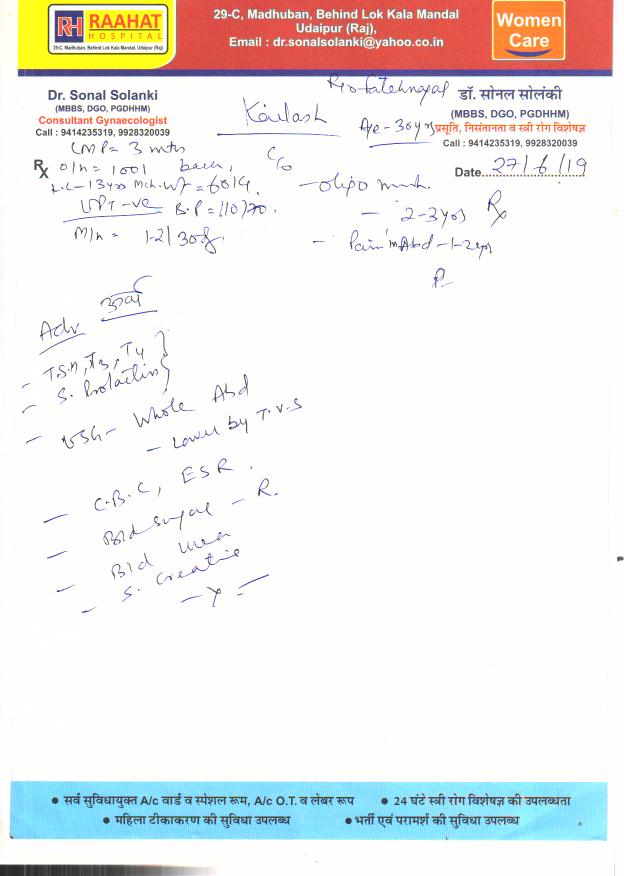 RH RAAHAT
HOSPITAL
29-C, Madhuban, Behind Lok Kala Mandal, Udaipur (Raj)
29-C, Madhuban, Behind Lok Kala Mandal
Udaipur (Raj),
Email : dr.sonalsolanki@yahoo.co.in
Women
Care
Dr. Sonal Solanki
(MBBS, DGO, PGDHHM)
Consultant Gynaecologist
Call : 9414235319, 9928320039
Kailash
R/o Fatehnagar
A/e - 30yrs
डॉ. सोनल सोलंकी
(MBBS, DGO, PGDHHM)
प्रसूति, निसंतानता व स्त्री रोग विशेषज्ञ
Call : 9414235319, 9928320039
Date 27/6/19
LMP = 3 mths back,
Rx O/H = 1001
L.C - 13yrs Mch. WT = 60
UPT -ve B.P = 110/70.
M/H = 1-2/30
C/o
- oligo
- 2-3yrs Rx
- Pain in Abd - 1-2 yrs
Adv
- TSH, T3, T4
- S. Prolactin
- USG - Whole Abd
- Lower by T.V.S
- C.B.C, ESR.
- Bld sugar - R.
- Bld urea
- S. Creatine
• सर्व सुविधायुक्त A/c वार्ड व स्पेशल रूम, A/c O.T. व लेबर रूप • 24 घंटे स्त्री रोग विशेषज्ञ की उपलब्धता
• महिला टीकाकरण की सुविधा उपलब्ध • भर्ती एवं परामर्श की सुविधा उपलब्ध